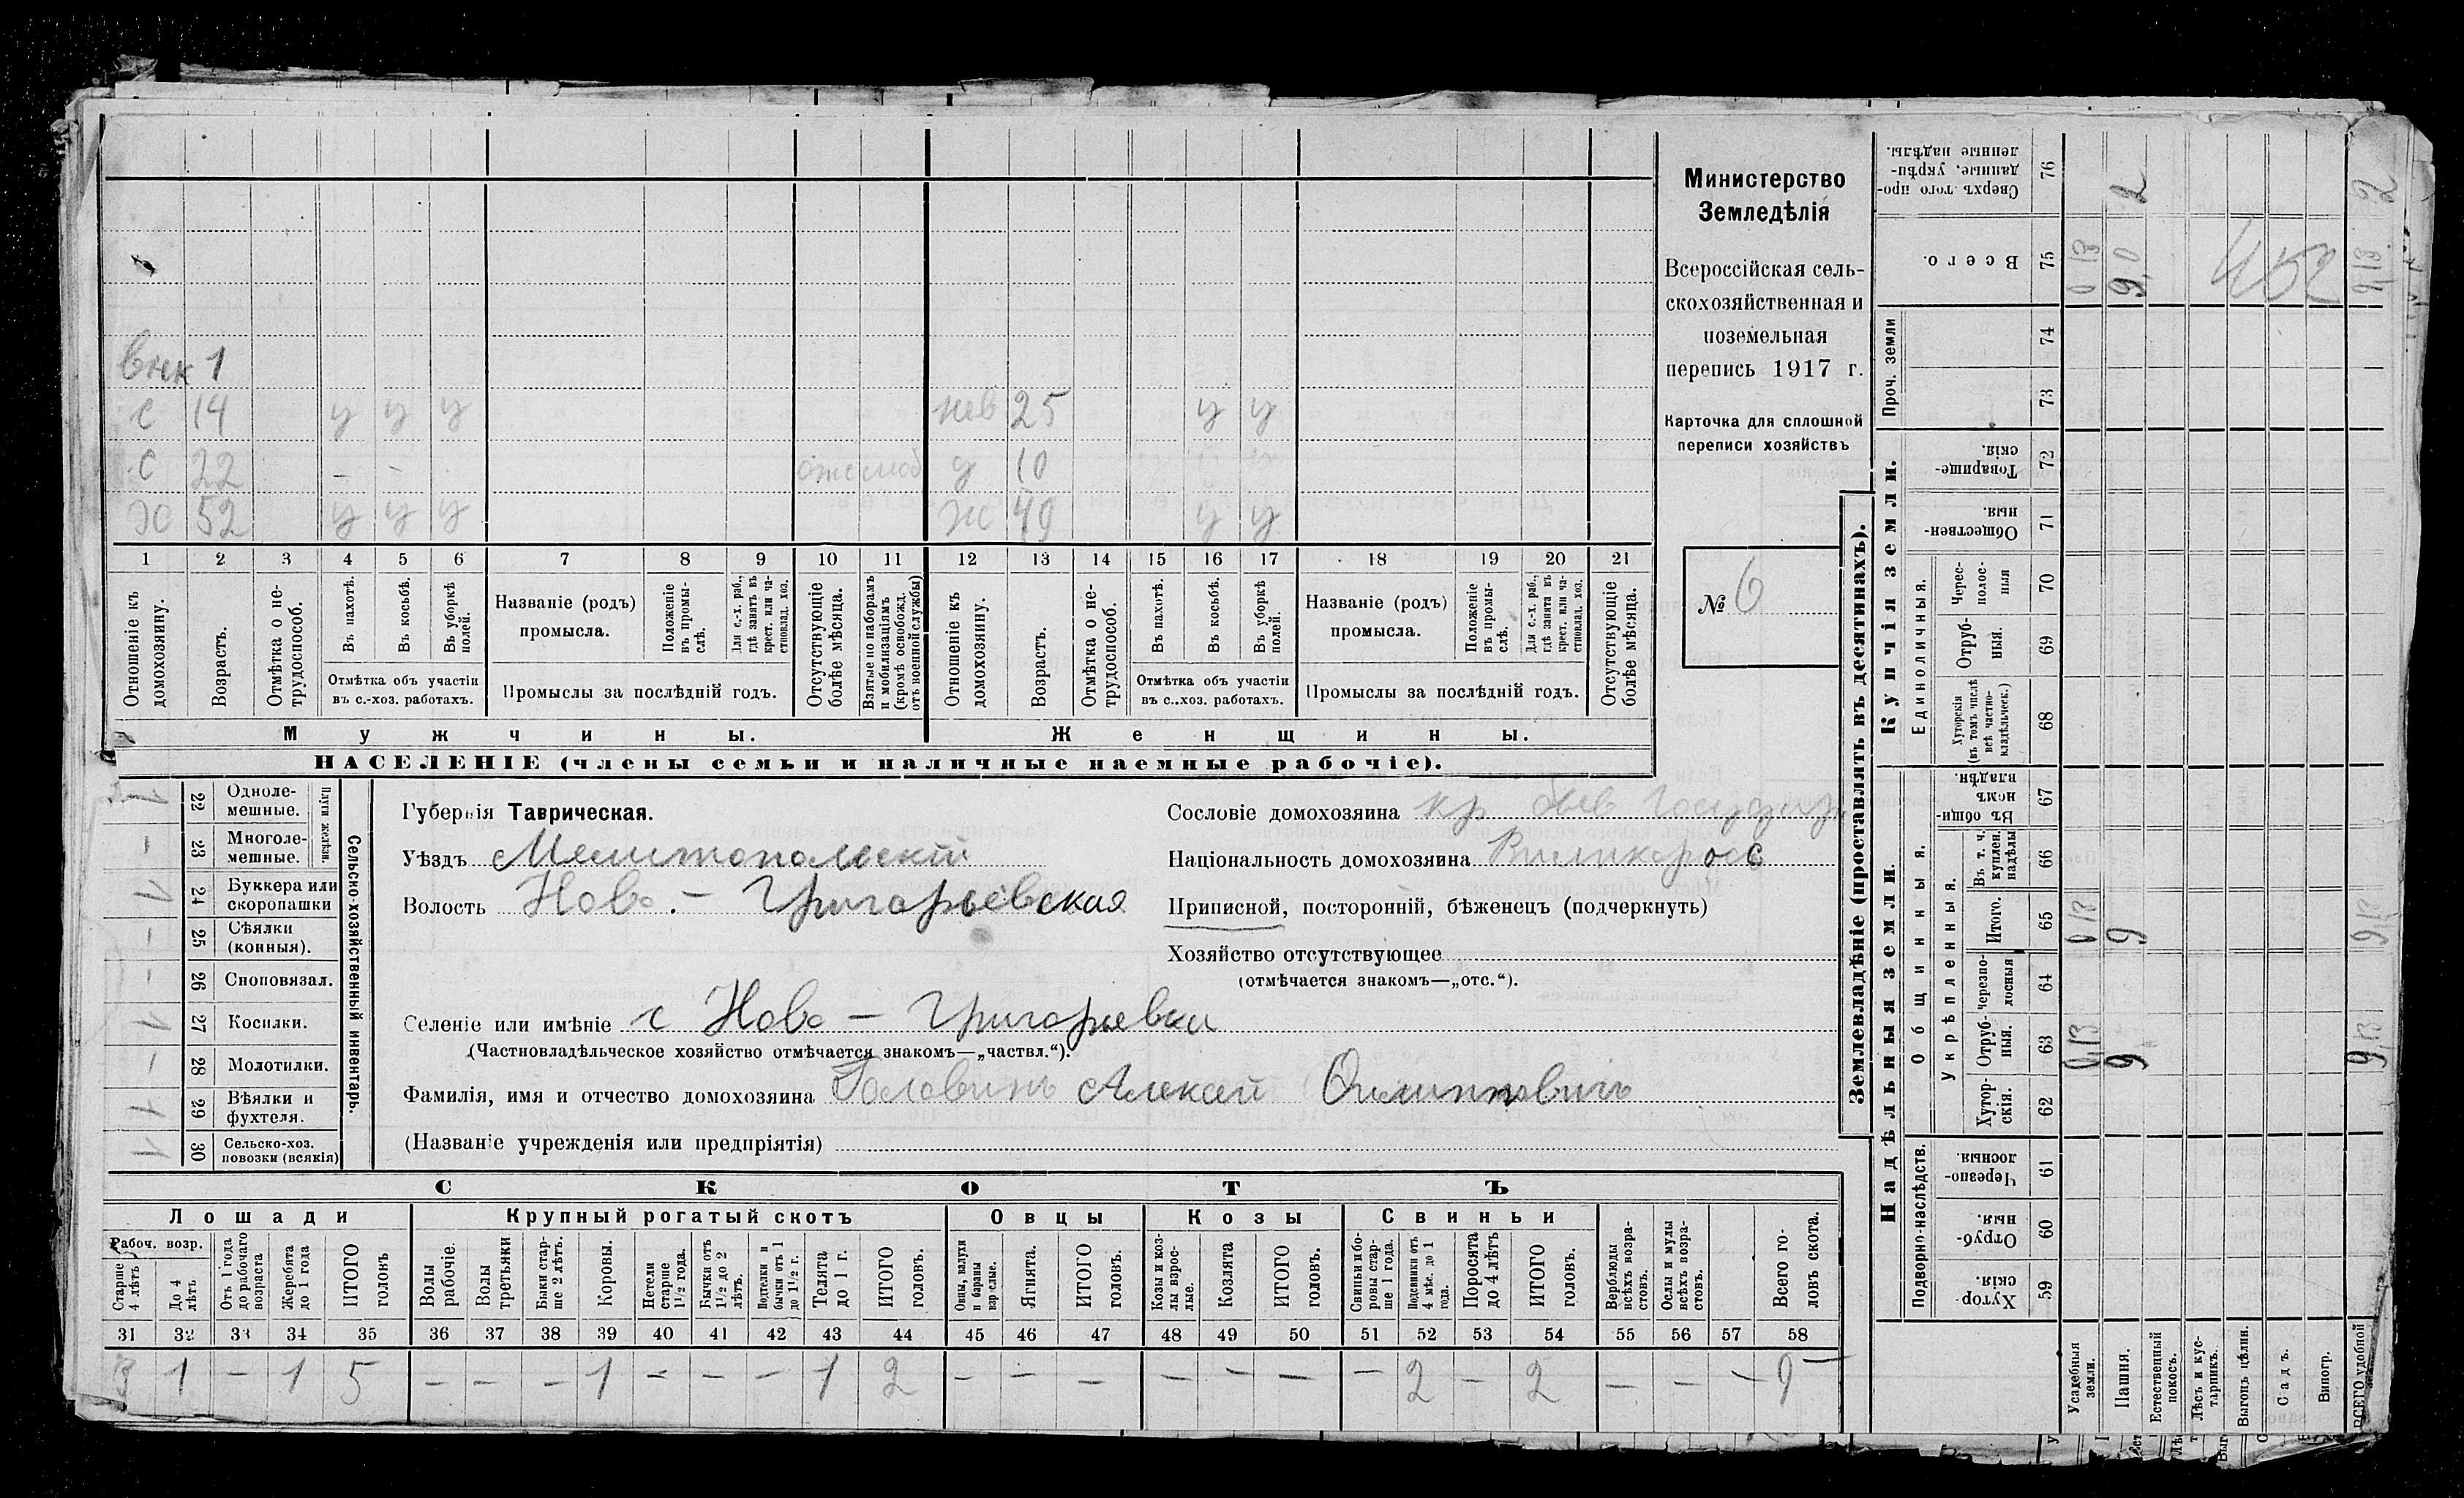 внк 1
с 14 у у у нев 25 у у
с 22 - - д 10
Х 52 у у у Ж 49 у у
1 2 3 4 5 6 7 8 9 10 11 12 13 14 15 16 17 18 19 20 21
Отношеніе къ домохозяину.
Возрастъ.
Отмѣтка о не-трудоспособ.
Въ пахотѣ.
Въ косьбѣ.
Въ уборкѣ полей.
Отмѣтка объ участіи въ с.-хоз. работахъ.
Названіе (родъ) промысла.
Положеніе въ промы-слѣ.
Для с.-х. раб., гдѣ занятъ въ крест. или ча-стновлад. хоз.
Промыслы за послѣдній годъ.
Отсутствующіе болѣе мѣсяца.
Взятые по наборамъ и мобилизаціямъ (кромѣ освобожд. отъ военной службы)
Отношеніе къ домохозяину.
Возрастъ.
Отмѣтка о не-трудоспособ.
Въ пахотѣ.
Въ косьбѣ.
Въ уборкѣ полей.
Отмѣтка объ участіи въ с.-хоз. работахъ.
Названіе (родъ) промысла.
Положеніе въ промы-слѣ.
Для с.-х. раб., гдѣ занята въ крест. или ча-стновлад. хоз.
Промыслы за послѣдній годъ.
Отсутствующіе болѣе мѣсяца.
Мужчины. Женщины.
НАСЕЛЕНІЕ (члены семьи и наличные наемные рабочіе).
Министерство
Земледѣлія
Всероссійская сель-
скохозяйственная и
поземельная
перепись 1917 г.
Карточка для сплошной
переписи хозяйствъ
№ 6
Сельско-хозяйственный инвентарь.
Плуги желѣзн.
1 22 Одноле-мешные.
- 23 Многоле-мешные.
1 24 Буккера или скоропашки
- 25 Сѣялки (конныя).
- 26 Сноповязал.
1 27 Косилки.
- 28 Молотилки.
1 29 Вѣялки и фухтеля.
1 30 Сельско-хоз. повозки (всякія)
Губернія Таврическая.
Уѣздъ Мелитопольскій
Волость Ново-Григорьевская
Сословіе домохозяина кр быв Государ
Національность домохозяина Великоросс
Приписной, посторонній, бѣженецъ (подчеркнуть)
Хозяйство отсутствующее
(отмѣчается знакомъ—„отс.“).
Селеніе или имѣніе с Ново-Григорьевка
(Частновладѣльческое хозяйство отмѣчается знакомъ—„частвл.“).
Фамилія, имя и отчество домохозяина Головинъ Алексѣй Филипповичъ
(Названіе учрежденія или предпріятія)
СКОТЪ
Лошади Крупный рогатый скотъ Овцы Козы Свиньи
Рабоч. возр.
Старше 4 лѣтъ
До 4 лѣтъ
Отъ 1 года до рабочаго возраста
Жеребята до 1 года
ИТОГО головъ
Волы рабочіе.
Волы третьяки
Быки стар-ше 2 лѣтъ.
Коровы.
Нетели старше 1½ года.
Бычки отъ 1½ до 2 лѣтъ.
Подтелки и бычки отъ 1 до 1½ г.
Телята до 1 г.
ИТОГО головъ.
Овцы, валухи и бараны взрослые.
Ягнята.
ИТОГО головъ.
Козы и коз-лы взрос-лые.
Козлята
ИТОГО головъ.
Свиньи и бо-ровы стар-ше 1 года.
Подсвинки отъ 4 мѣс. до 1 года.
Поросята до 4 лѣтъ
ИТОГО головъ.
Верблюды всѣхъ возра-стовъ.
Ослы и мулы всѣхъ возра-стовъ.
Всего го-ловъ скота.
31 32 33 34 35 36 37 38 39 40 41 42 43 44 45 46 47 48 49 50 51 52 53 54 55 56 57 58
3 1 - 1 5 - - - 1 - - - 1 2 - - - - - - - 2 - 2 - - - 9
Землевладѣніе (проставлять въ десятинахъ).
Купчія земли.
Надѣльныя земли.
Сверхъ того про-данные, укрѣп-ленные надѣлы. 76 2 2
Всего. 75 0 13 9,0 452 9,13
Проч. земли
74
73
Товарище-скія. 72
Обществен-ныя. 71
Единоличныя.
Черес-полос-ныя 70
Отруб-ныя. 69
Хуторскія (въ томъ числѣ всѣ частно-владѣльческ.) 68
Общинныя.
Въ общин-номъ владѣн. 67
Укрѣпленныя.
Въ т. ч. куплен. надѣлы 66
Итого. 65 0 13 9 9,13
Черезпо-лосныя 64
Отруб-ныя. 63 0,13 9 9,13
Хутор-скія. 62
Подворно-наслѣдств.
Черезпо-лосныя. 61
Отруб-ныя. 60
Хутор-скія. 59
Усадебныя земли.
Пашня.
Естественный покосъ.
Лѣсъ и кус-тарникъ.
Выгонъ цѣлин.
Садъ.
Виногр.
ВСЕГО удобной